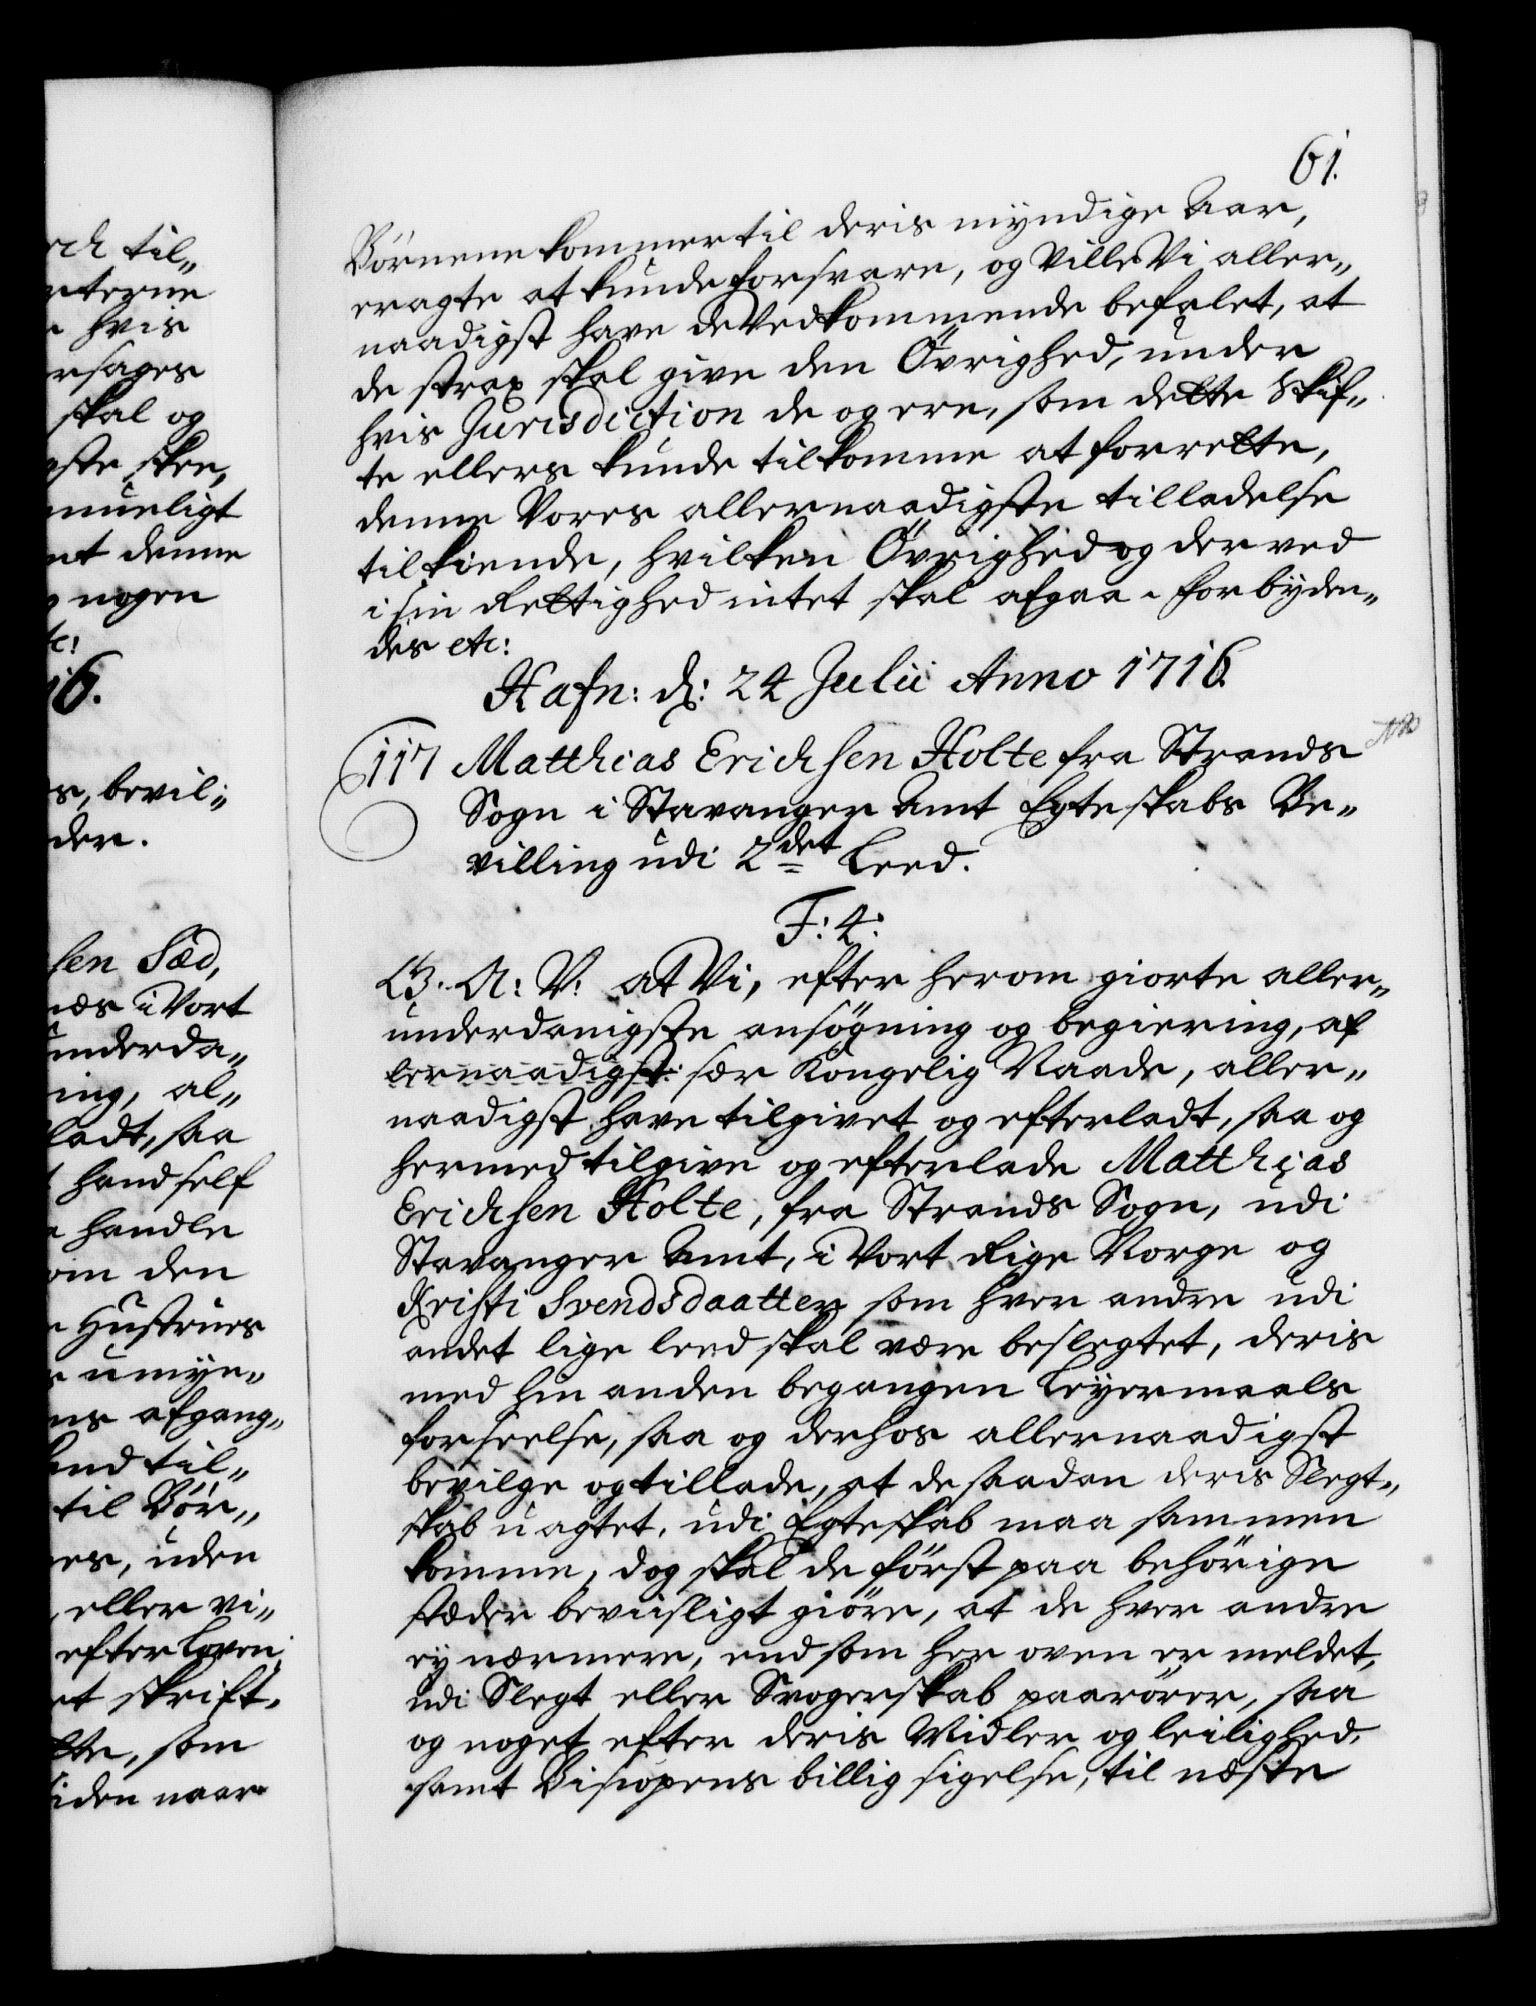 61.
Börnene kommer til deris myndige Aar,
eragte at kunde forsvare, og Ville Vi aller„
naadigst have de Vedkommende befalet, at
de strax skal give den Övrighed, under
hvis Jurisdiction de og ere, som dette Skif„
te ellers kunde tilkomme at forrette,
denne Vores allernaadigste tilladelse
tilkiende, hvilken Övrighed og derved
i sin Rettighed intet skal afgaa. Forbyden„
des etc:
Hafn: d: 24 Julii Anno 1716.
117 Matthias Erichsen Holte fra Strands
NB
Sogn i Stavanger Amt Egteskabs Be„
villing udi 2det Leed.
F: 4:
G. A: V: at Vi, efter herom giorte aller„
underdanigste ansögning og begiering, af
lernaadigst: sær Kongelig Naade, aller„
naadigst have tilgivet og efterladt, saa og
hermed tilgive og efterlade Matthias
Erichsen Holte, fra Strands Sogn, udi
Stavanger Amt, i Vort Rige Norge og
Kristi Svendsdaatter som hver andre udi
andet lige leed skal være beslegtet, deris
med hin anden begangen Leyermaals
forseelse, saa og derhos allernaadigst
bevilge og tillade, at de saadan deris Slegt„
skab uagtet, udi Egteskab maa sammen
komme, dog skal de först paa behörige
stæder beviisligt giöre, at de hver andre
ey nærmere, end som her oven er meldet,
udi Slegt eller Svogerskab paarörer, saa
og noget efter deris Midler og leilighed,
samt Biscopens billig sigelse, til næste
rch til„
rterne
hvis
rsages
skal og
gste skee,
mueligt
nt denne
nogen
tc:
16.
s, bevil„
der.
sen Sæd,
næs i Vort
underda„
ing, al„
ladt, saa
hand self
handle
om den
Hustrues
umyn„
ns afgang„
and til„
til Bör„
es, uden
, eller vi„
efter Loven
et skrift„
tte, som
siden naar